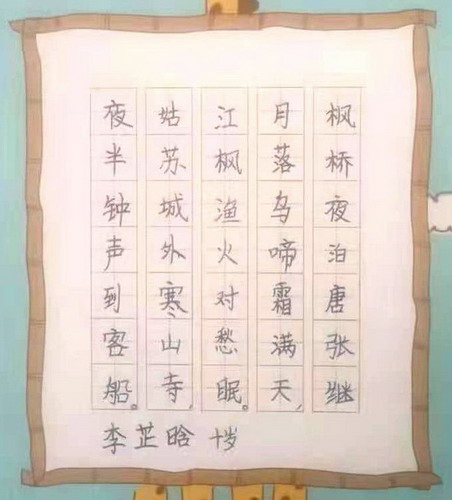 枫桥夜泊唐张继
月落乌啼霜满天,
江枫渔火对愁眠。
姑苏城外寒山寺,
夜半钟声到客船。
李芷晗 十岁